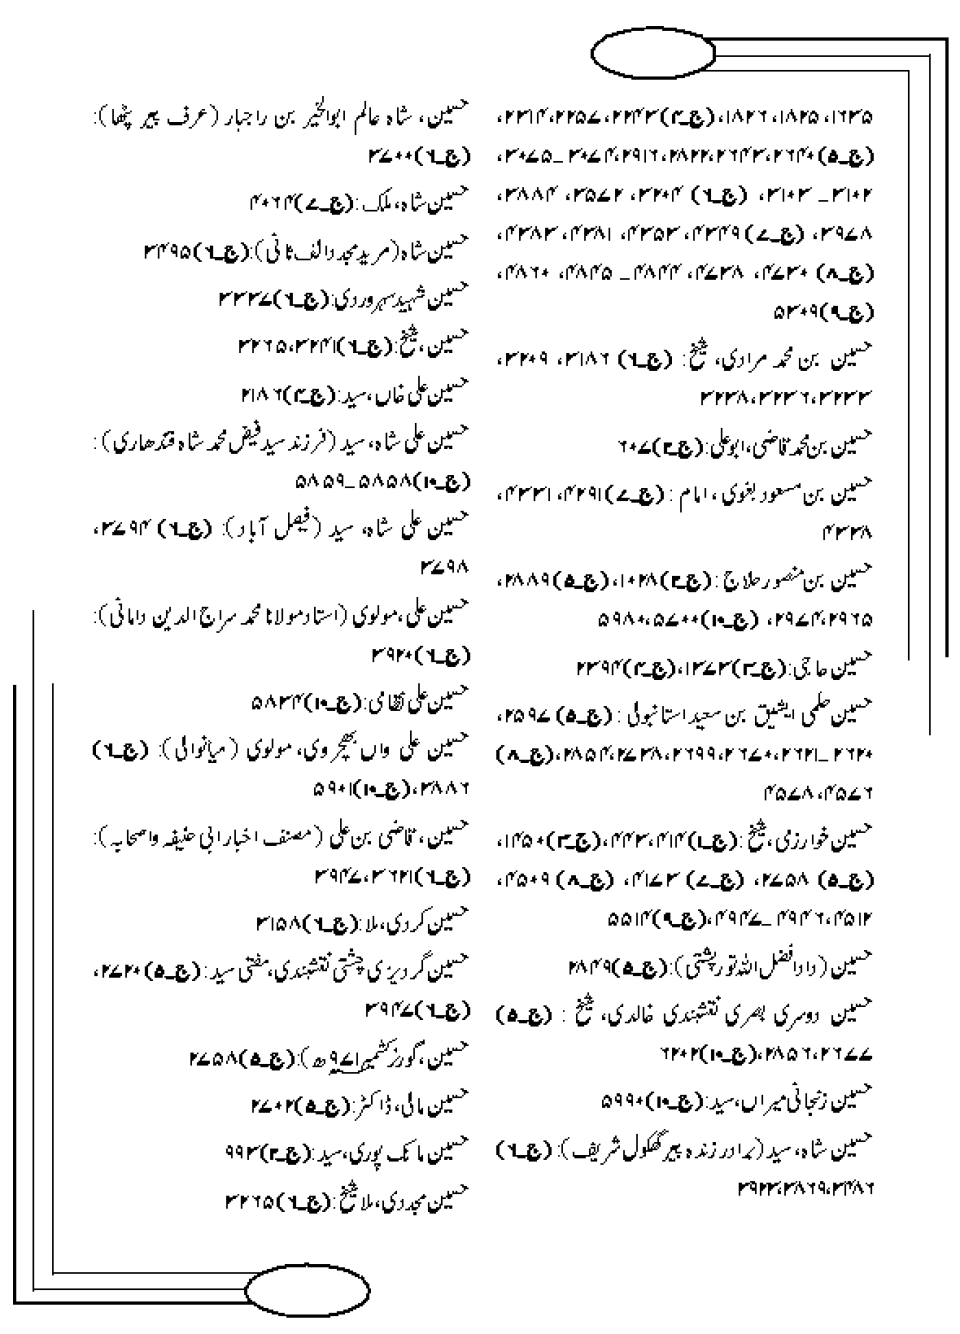 ۱۶۳۵، ۱۸۲۵، ۱۸۲۶، (ج۔۴)۲۲۴۳، ۲۲۵۷، ۲۳۱۴،
(ج۔۵)۲۶۴۰، ۲۶۴۳، ۲۸۲۲، ۲۹۱۶، ۳۰۷۴۔۳۰۷۵،
۳۱۰۲ـ ۳۱۰۳، (ج۔۶) ۳۲۰۴، ۳۵۷۲، ۳۸۸۴،
۳۹۷۸، (ج۔۷)۴۳۴۹، ۴۳۵۳، ۴۳۸۱، ۴۳۸۳،
(ج۔۸) ۴۷۳۰، ۴۷۳۸، ۴۸۴۴ـ ۴۸۴۵، ۴۸۶۰،
(ج۔۹)۵۳۰۹
حسین بن محمد مرادی، شیخ: (ج۔۶) ۳۱۸۶، ۳۲۰۹،
۳۲۳۳، ۳۲۳۶، ۳۲۳۸
حسین بن محمد قاضی، ابوعلی: (ج۔۲)۶۰۷
حسین بن مسعود بغوی، امام: (ج۔۷)۴۲۹۱، ۴۳۳۱،
۴۳۳۸
حسین بن منصور حلاج: (ج۔۲)۱۰۲۸، (ج۔۵)۲۸۸۹،
۲۹۶۵، ۲۹۷۴، (ج۔۱۰)۵۷۰۰، ۵۹۸۰
حسین حاجی: (ج۔۳)۱۳۷۳، (ج۔۴)۲۳۹۴
حسین حلمی ایشیق بن سعید استانبولی: (ج۔۵) ۲۵۹۷،
۲۶۲۰ـ۲۶۲۱، ۲۶۷۰، ۲۶۹۹، ۲۷۳۸، ۲۸۵۴، (ج۔۸)
۴۵۷۶، ۴۵۷۸
حسین خوارزمی، شیخ: (ج۔۱)۴۱۴، ۴۴۳، (ج۔۳)۱۴۵۰،
(ج۔۵) ۲۷۵۸، (ج۔۷) ۴۱۷۳، (ج۔۸) ۴۵۰۹،
۴۵۱۲، ۴۹۴۶ـ۴۹۴۷، (ج۔۹)۵۵۱۴
حسین (دادا فضل اللہ تورپشتی): (ج۔۵)۲۸۴۹
حسین دوسری بصری نقشبندی خالدی، شیخ: (ج۔۵)
۲۶۷۷، ۲۸۵۶، (ج۔۱۰)۶۲۰۲
حسین زنجانی میراں، سید: (ج۔۱۰)۵۹۹۰
حسین شاہ، سید (برادر زندہ پیر گھمکول شریف): (ج۔۶)
۳۴۸۶، ۳۸۶۹، ۳۹۲۳
حسین، شاہ عالم ابوالخیر بن راجبار (عرف پیر پٹھا):
(ج۔۶)۳۷۰۰
حسین شاہ، ملک: (ج۔۷)۴۰۶۴
حسین شاہ (مرید مجدد الف ثانی): (ج۔۶)۳۴۹۵
حسین شہید سہروردی: (ج۔۶)۳۳۳۷
حسین، شیخ: (ج۔۶)۳۲۴۱، ۳۲۶۵
حسین علی خاں، سید: (ج۔۴)۲۱۸۶
حسین علی شاہ، سید (فرزند سید فیض محمد شاہ قندھاری):
(ج۔۱۰)۵۸۵۸ـ۵۸۵۹
حسین علی شاہ، سید (فیصل آباد): (ج۔۶) ۳۷۹۴،
۳۷۹۸
حسین علی، مولوی (استاد مولانا محمد سراج الدین دامانی):
(ج۔۶)۳۹۲۰
حسین علی نظامی: (ج۔۱۰)۵۸۳۴
حسین علی واں بھچروی، مولوی (میانوالی): (ج۔۶)
۳۸۸۶، (ج۔۱۰)۵۹۰۱
حسین، قاضی بن علی (مصنف اخبار ابی حنیفہ واصحابہ):
(ج۔۶)۳۶۲۱، ۳۹۴۷
حسین کردی، ملا: (ج۔۶)۳۱۵۸
حسین گردیزی چشتی نقشبندی، مفتی سید: (ج۔۵)۲۷۲۰،
(ج۔۶)۳۹۴۷
حسین، گورنر کشمیر (۹۷۱ھ): (ج۔۵)۲۷۵۸
حسین مالی، ڈاکٹر: (ج۔۵)۲۷۰۲
حسین مانک پوری، سید: (ج۔۲)۹۹۳
حسین مجددی، ملا شیخ: (ج۔۶)۳۲۶۵